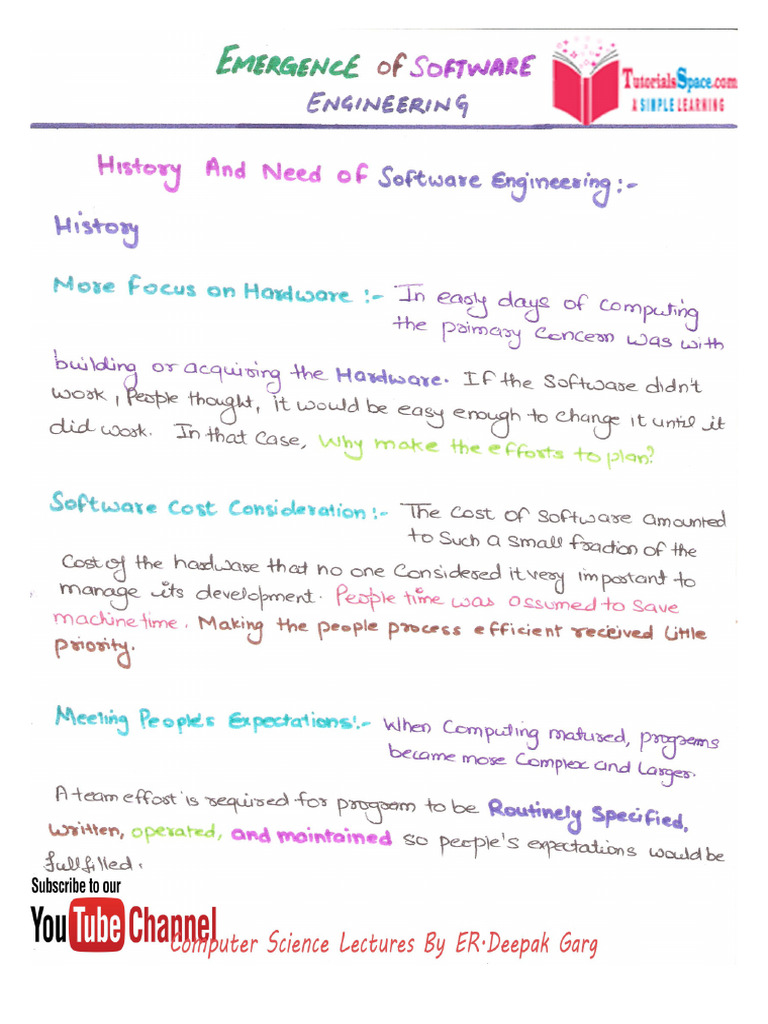 EMERGENCE OF SOFTWARE
ENGINEERING
TutorialsSpace.com
A SIMPLE LEARNING
History And Need of Software Engineering:-
History
More Focus on Hardware :- In early days of computing
the primary concern was with
building or acquiring the Hardware. If the software didn't
work, People thought, it would be easy enough to change it until it
did work. In that case, why make the efforts to plan?
Software Cost Consideration:- The cost of software amounted
to such a small fraction of the
cost of the hardware that no one considered it very important to
manage its development. People time was assumed to save
machine time. Making the people process efficient received little
priority.
Meeting People's Expectations:- When computing matured, programs
became more complex and larger.
A team effort is required for program to be Routinely Specified,
written, operated, and maintained so people's expectations would be
fullfilled.
Subscribe to our
YouTube Channel
Computer Science Lectures By ER.Deepak Garg